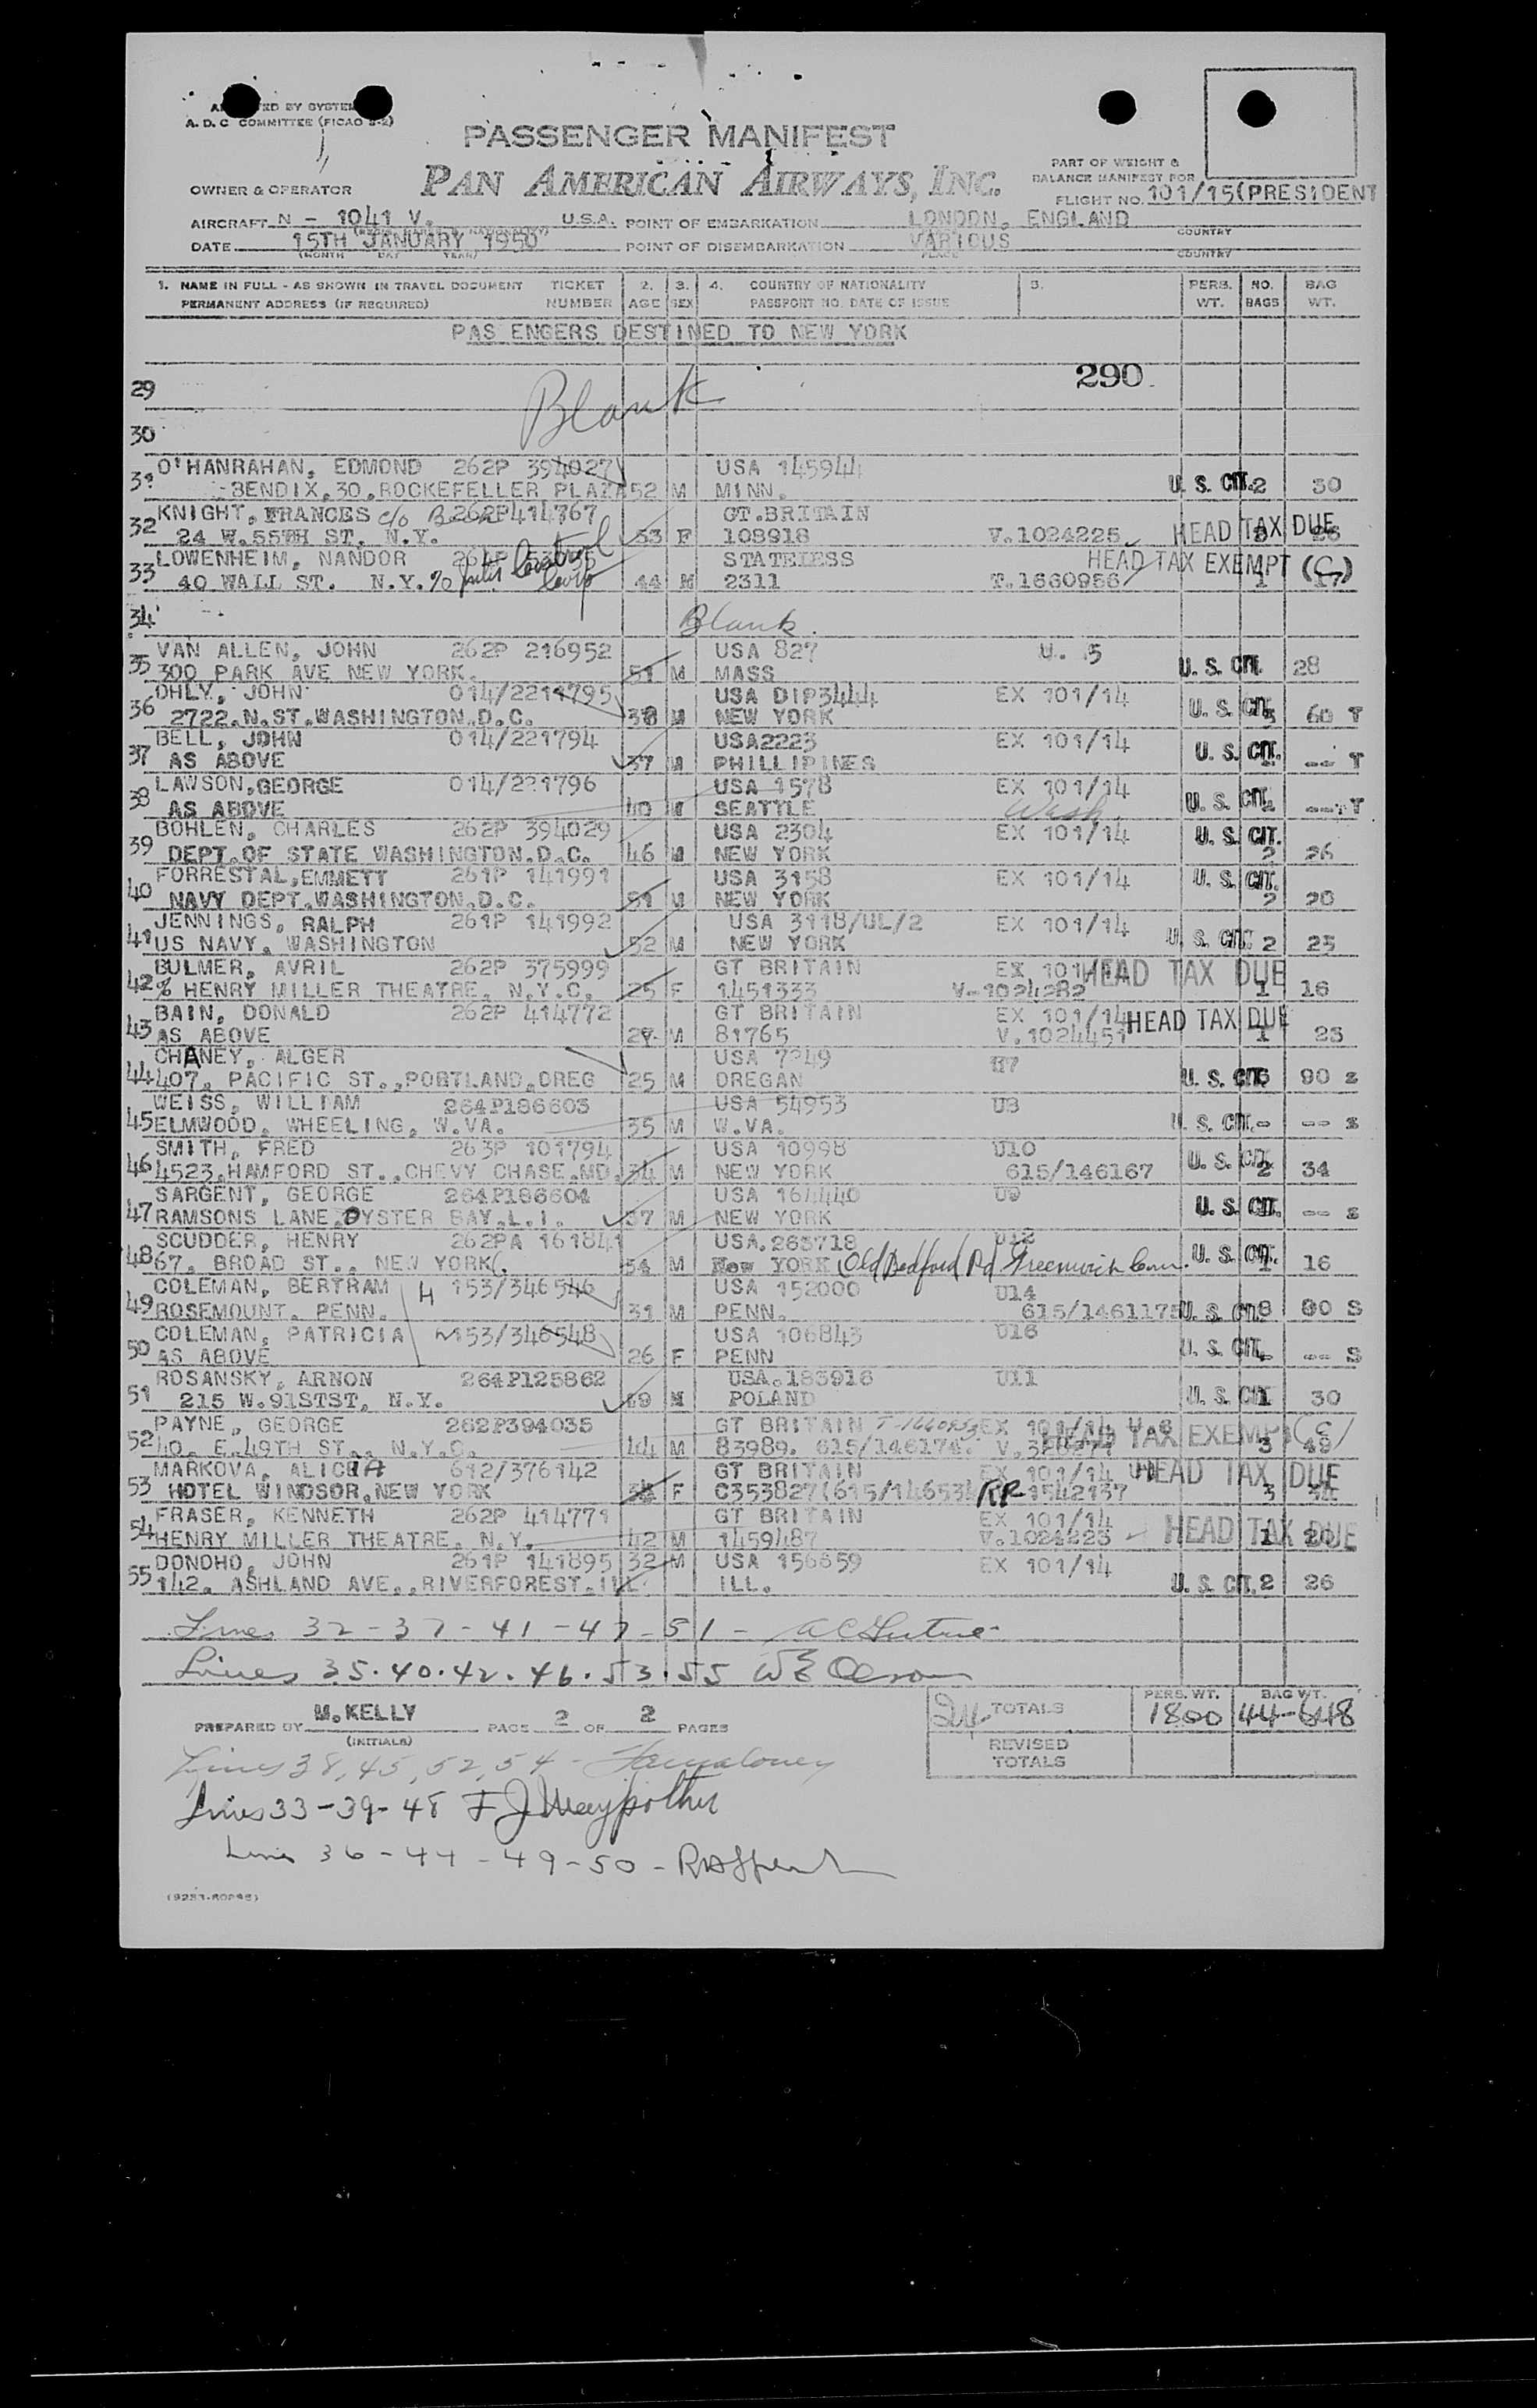 A. D. C. COMMITTEE (FICAO S-2)
PASSENGER MANIFEST
PAN AMERICAN AIRWAYS, INC.
OWNER & OPERATOR
PART OF WEIGHT &
BALANCE MANIFEST FOR
FLIGHT NO. 101/15(PRESIDENT
AIRCRAFT N - 1041 V. U.S.A. POINT OF EMBARKATION LONDON, ENGLAND
COUNTRY
DATE 15TH JANUARY 1950 POINT OF DISEMBARKATION VARIOUS
(MONTH DAY YEAR) PLACE COUNTRY
1. NAME IN FULL - AS SHOWN IN TRAVEL DOCUMENT TICKET 2. 3. 4. COUNTRY OF NATIONALITY 5. PERS. NO. BAG
PERMANENT ADDRESS (IF REQUIRED) NUMBER AGE SEX PASSPORT NO. DATE OF ISSUE WT. BAGS WT.
PAS ENGERS DESTINED TO NEW YORK
290.
29
Blank
30
O'HANRAHAN, EDMOND 262P 394027 USA 145944
31 BENDIX,30,ROCKEFELLER PLAZA 52 M MINN. U. S. CIT. 2 30
KNIGHT, FRANCES c/o 262P414767 GT.BRITAIN
32 24 W.55TH ST, N.Y. 53 F 108918 V.1024225 HEAD TAX DUE
LOWENHEIM, NANDOR STATELESS HEAD TAX EXEMPT (C)
33 40 WALL ST. N.Y. 44 M 2311 T.1660956 1 17
34 Blank.
VAN ALLEN, JOHN 262P 216952 USA 827 U. 5
35 300 PARK AVE NEW YORK. 51 M MASS U. S. CIT. 28
OHLY, JOHN 014/2214795 USA DIP3444 EX 101/14
36 2722.N.ST.WASHINGTON.D.C. 38 M NEW YORK U. S. CIT. 60 T
BELL, JOHN 014/221794 USA2223 EX 101/14
37 AS ABOVE 37 M PHILLIPINES U. S. CIT. -- T
LAWSON,GEORGE 014/221796 USA 1578 EX 101/14
38 AS ABOVE 40 M SEATTLE Wash. U. S. CIT. -- T
BOHLEN, CHARLES 262P 394029 USA 2304 EX 101/14 U. S. CIT.
39 DEPT.OF STATE WASHINGTON.D.C. 46 M NEW YORK 2 26
FORRESTAL,EMMETT 261P 141991 USA 3158 EX 101/14 U. S. CIT.
40 NAVY DEPT.WASHINGTON.D.C. 51 M NEW YORK 2 20
JENNINGS, RALPH 261P 141992 USA 3118/UL/2 EX 101/14
41 US NAVY, WASHINGTON 52 M NEW YORK U. S. CIT. 2 23
BULMER, AVRIL 262P 375999 GT BRITAIN EX 101/14 HEAD TAX DUE
42 % HENRY MILLER THEATRE, N.Y.C. 25 F 1451333 V-1024282 1 16
BAIN, DONALD 262P 414772 GT BRITAIN EX 101/14 HEAD TAX DUE
43 AS ABOVE 27 M 81765 V.1024451 1 23
CHANEY, ALGER USA 7249 U7
44 407, PACIFIC ST.,PORTLAND,OREG 25 M OREGAN U. S. CIT. 90 z
WEISS, WILLIAM 264P186603 USA 54953 U3
45 ELMWOOD, WHEELING, W.VA. 35 M W.VA. U. S. CIT. -- z
SMITH, FRED 263P 101794 USA 10998 U10
46 4523,HAMFORD ST.,CHEVY CHASE.MD. 34 M NEW YORK 615/146167 U. S. CIT. 2 34
SARGENT, GEORGE 264P186604 USA 164440 U9
47 RAMSONS LANE,OYSTER BAY.L.I. 37 M NEW YORK U. S. CIT. -- z
SCUDDER, HENRY 262PA 161841 USA.263718 U12
48 67, BROAD ST., NEW YORK 54 M New YORK Old Bedford Rd Greenwich Conn. U. S. CIT. 1 16
COLEMAN, BERTRAM H 153/346546 USA 152000 U14
49 ROSEMOUNT, PENN. 31 M PENN. 615/1461175 U. S. CIT. 8 80 S
COLEMAN, PATRICIA W 153/346548 USA 106843 U16
50 AS ABOVE 26 F PENN U. S. CIT. -- S
ROSANSKY, ARNON 264P125862 USA.183918 U11
51 215 W.91STST, N.Y. 59 M POLAND U. S. CIT. 1 30
PAYNE, GEORGE 262P394035 GT BRITAIN EX 101/14 HEAD TAX EXEMPT (C)
52 40, E.49TH ST., N.Y.C. 44 M 83989. 615/146174. 3 49
MARKOVA, ALICIA 612/376142 GT BRITAIN EX 101/14 HEAD TAX DUE
53 HOTEL WINDSOR,NEW YORK F C353827(615/146534 RP 1542137 3 34
FRASER, KENNETH 262P 414771 GT BRITAIN EX 101/14
54 HENRY MILLER THEATRE, N.Y. 42 M 1459487 V.1024223 HEAD TAX DUE 1 20
DONOHO, JOHN 261P 141895 32 M USA 156659 EX 101/14
55 142, ASHLAND AVE.,RIVERFOREST.ILL. ILL. U. S. CIT. 2 26
Lines 32-37-41-47-51-
Lines 35.40.42.46.53.55 W E Olson
PREPARED BY M.KELLY PAGE 2 OF 2 PAGES
(INITIALS)
24 TOTALS PERS. WT. 1800 BAG WT. 44-648
REVISED
TOTALS
Lines 38,45,52,54 -
Lines 33-39-48 F J
Lines 36-44-49-50 -